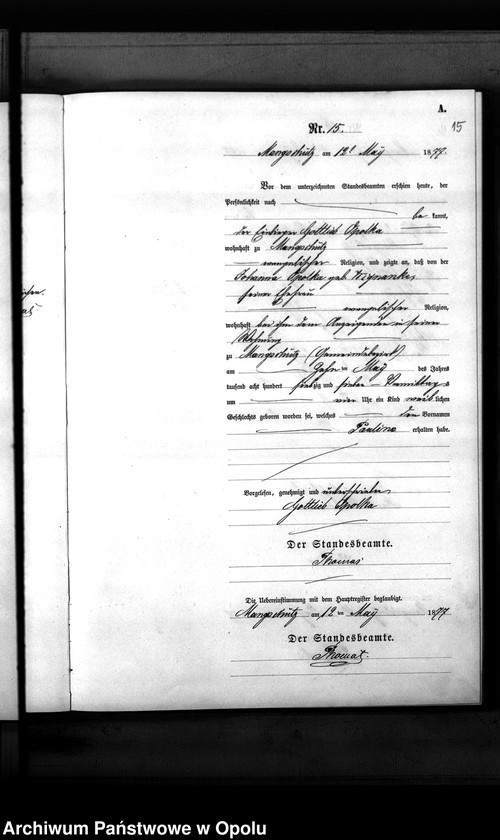 A.
15
Nr. 15.
Mangschütz am 12t May 1877.
Vor dem unterzeichneten Standesbeamten erschien heute, der
Persönlichkeit nach
be kannt,
der Einlieger Gottlieb Opolka
wohnhaft zu Mangschütz
evangelischer Religion, und zeigte an, daß von der
Johanna Opolka geb.
seiner Ehefrau
evangelischer Religion,
wohnhaft bei ihm dem Anzeigenden in seiner
Wohnung
zu Mangschütz (Gemeindebezirk)
am Zehn ten May des Jahres
tausend acht hundert siebzig und sieben Vormittags
um vier Uhr ein Kind weib lichen
Geschlechts geboren worden sei, welches den Vornamen
Pauline erhalten habe.
Vorgelesen, genehmigt und unterschrieben
Gottlieb Opolka
Der Standesbeamte.
Thomas
Die Uebereinstimmung mit dem Hauptregister beglaubigt.
Mangschütz am 12 ten May 1877
Der Standesbeamte.
Archiwum Państwowe w Opolu